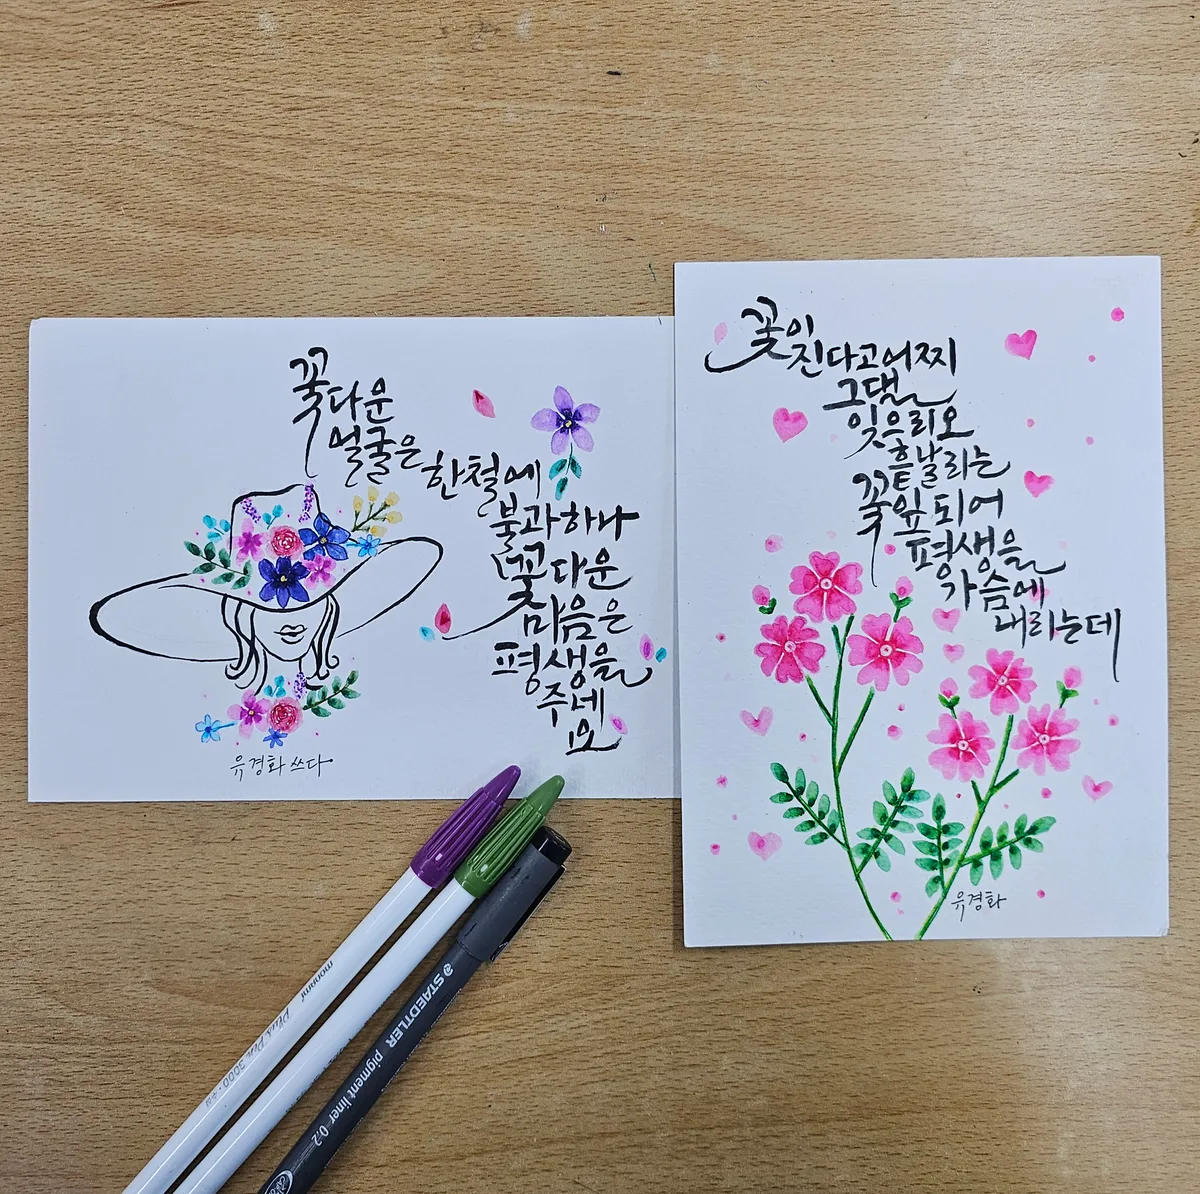 꽃다운
얼굴은
한철에
불과하나
꽃다운
마음은
평생을
주네
요
유경화 쓰다
꽃이
진다고어찌
그댈
잊으리오
흩날리는
꽃잎되어
평생을
가슴에
내리는데
유경화
monami Plus Pen 3000
STAEDTLER pigment liner 0.2